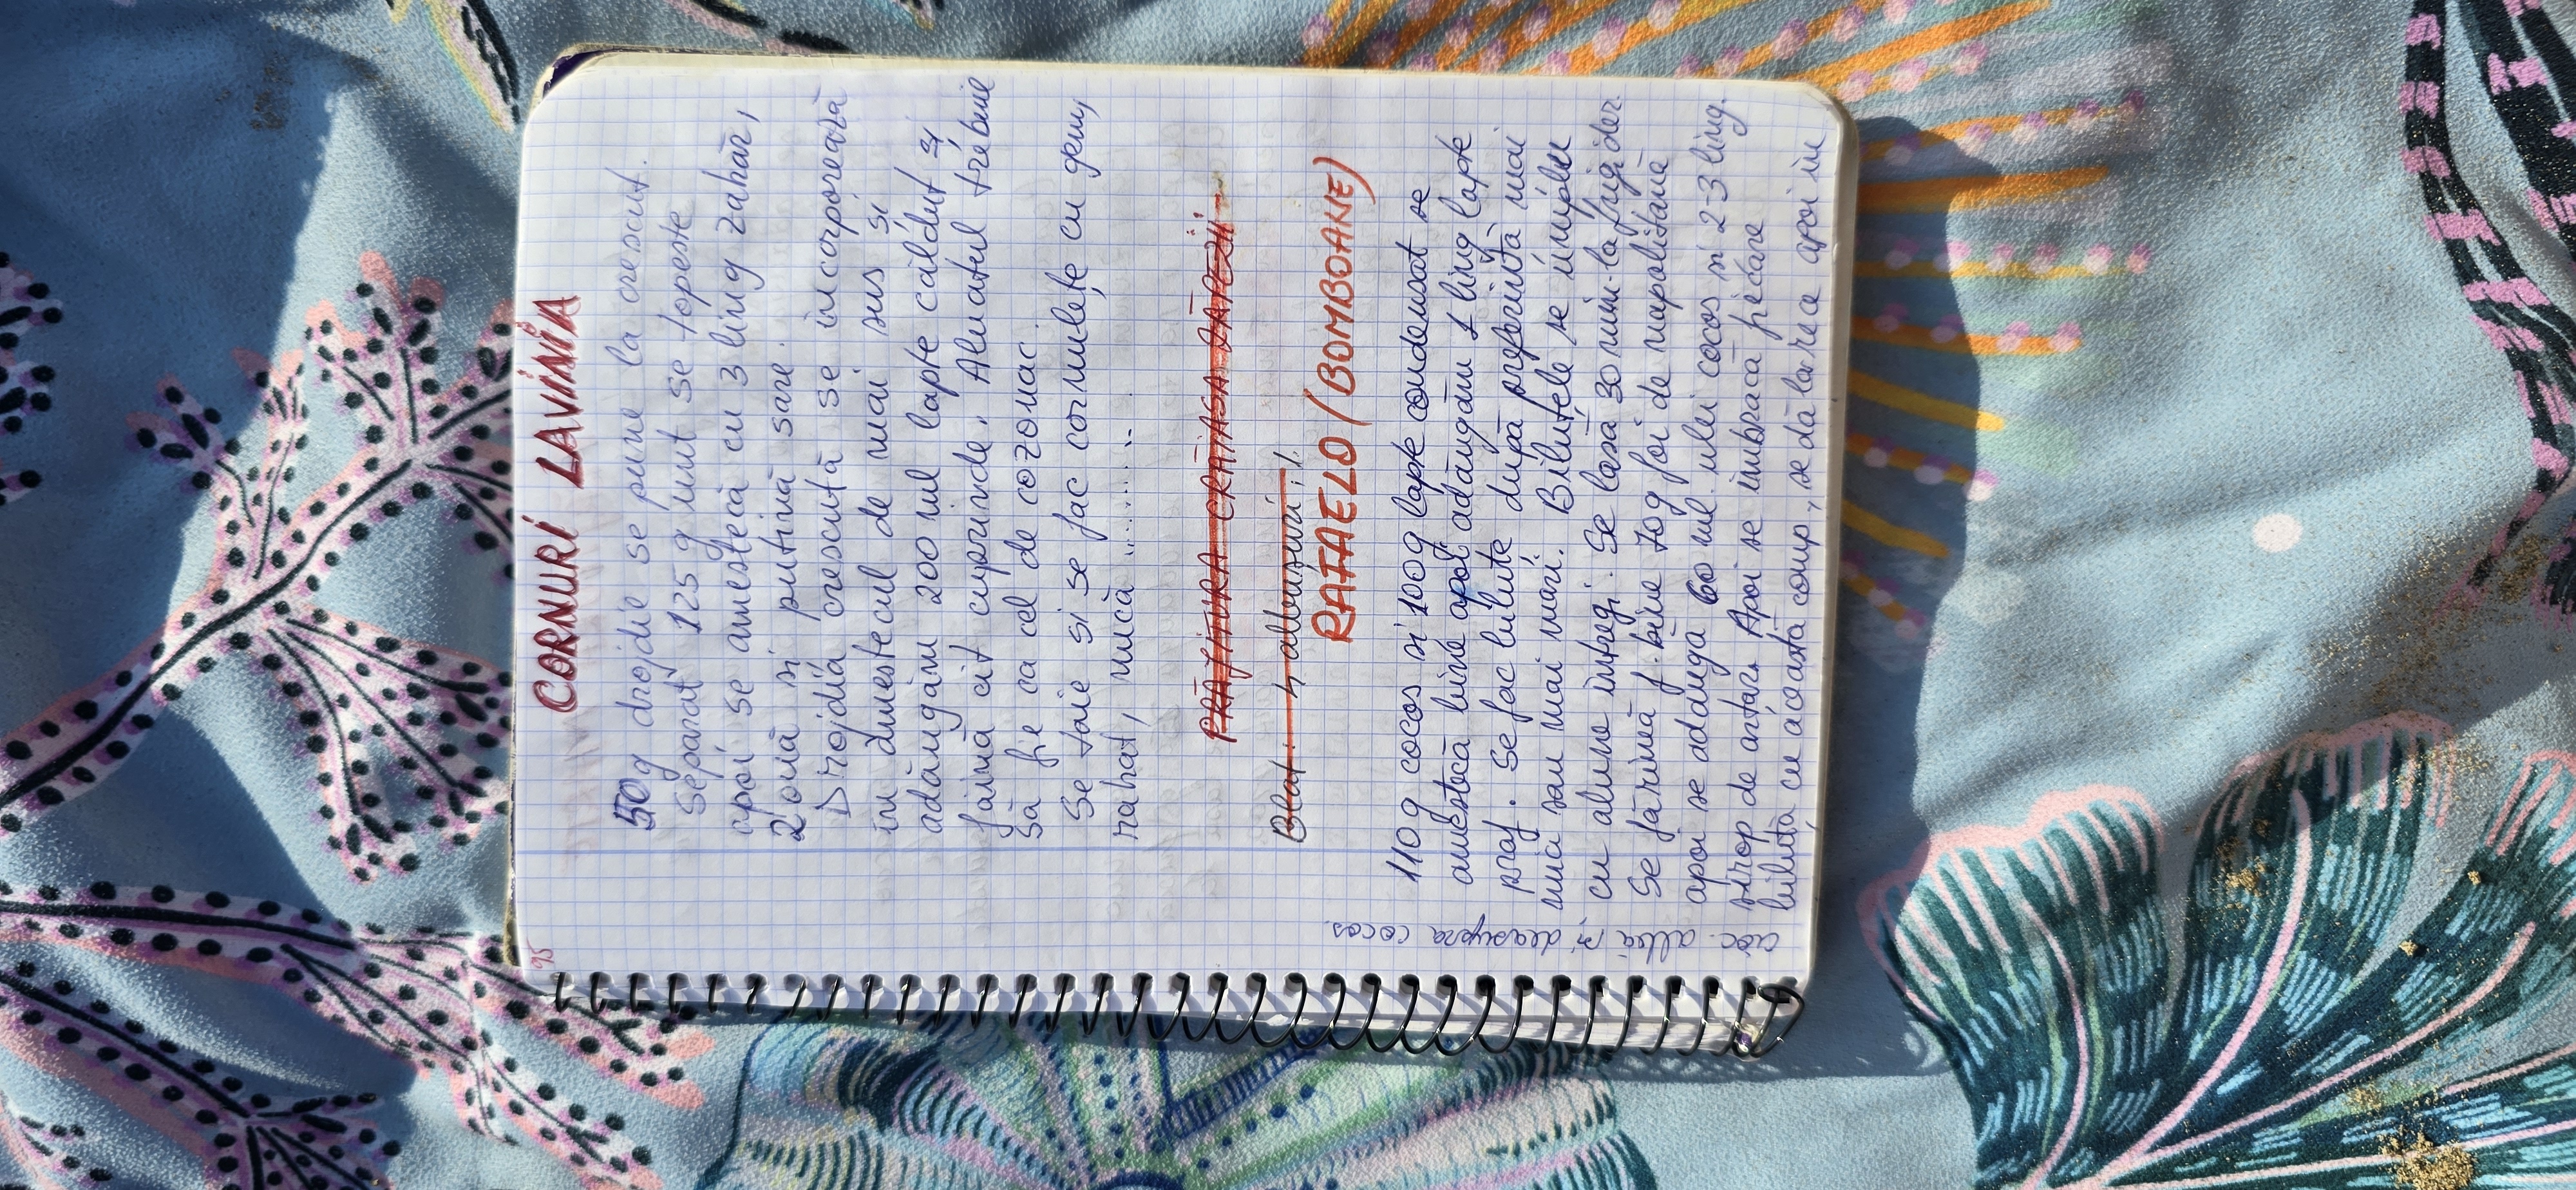 95
CORNURI LAVINIA
50g drojdie se pune la crescut.
Separat 125 g unt se topeste
apoi se amestecă cu 3 ling zahăr,
2 ouă și puțină sare.
Drojdia crescută se incorporează
in amestecul de mai sus și
adăugăm 200 ml lapte călduț și
făină cit cuprinde. Aluatul trebuie
să fie ca cel de cozonac.
Se taie si se fac cornulețe cu gem,
rahat, nucă ..........
PRĂJITURA CRĂIASA ZĂPEZII
Blat: 4 albușuri, 1.
RAFAELO (BOMBOANE)
110 g cocos și 100g lapte condensat se
amestecă bine apoi adăugăm 1 ling lapte
praf. Se fac biluțe după preferință mai
mici sau mai mari. Biluțele se umplu
cu alune intregi. Se lasă 30 min. la frigider.
Se fărimă f. bine 70g foi de napolitană
apoi se adaugă 60 ml. ulei cocos și 2-3 ling.
sirop de artar. Apoi se imbracă fiecare
biluță cu această comp., se dă la rece apoi in
cioc. albă și deasupra cocos.